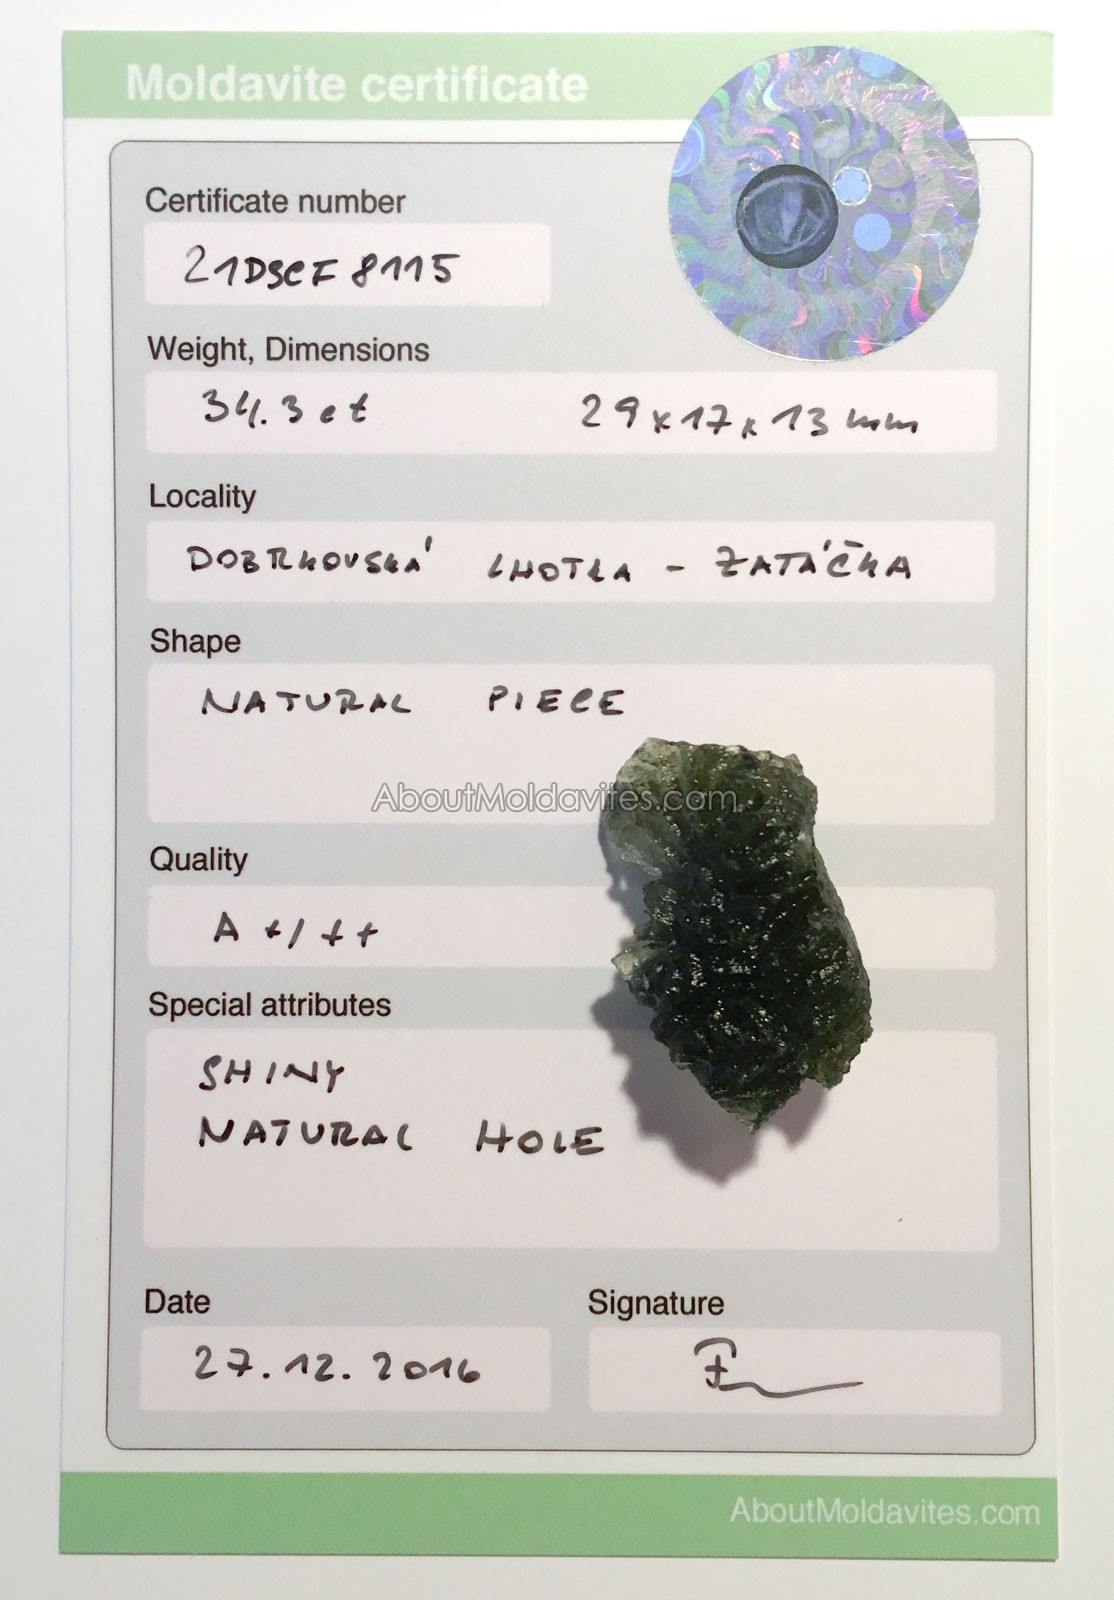 Moldavite certificate
Certificate number
21DSCF8115
Weight, Dimensions
34.3 ct 29x17x13 mm
Locality
DOBRKOVSKÁ LHOTKA - ZATÁČKA
Shape
NATURAL PIECE
AboutMoldavites.com
Quality
A +/++
Special attributes
SHINY
NATURAL HOLE
Date Signature
27.12.2016
AboutMoldavites.com